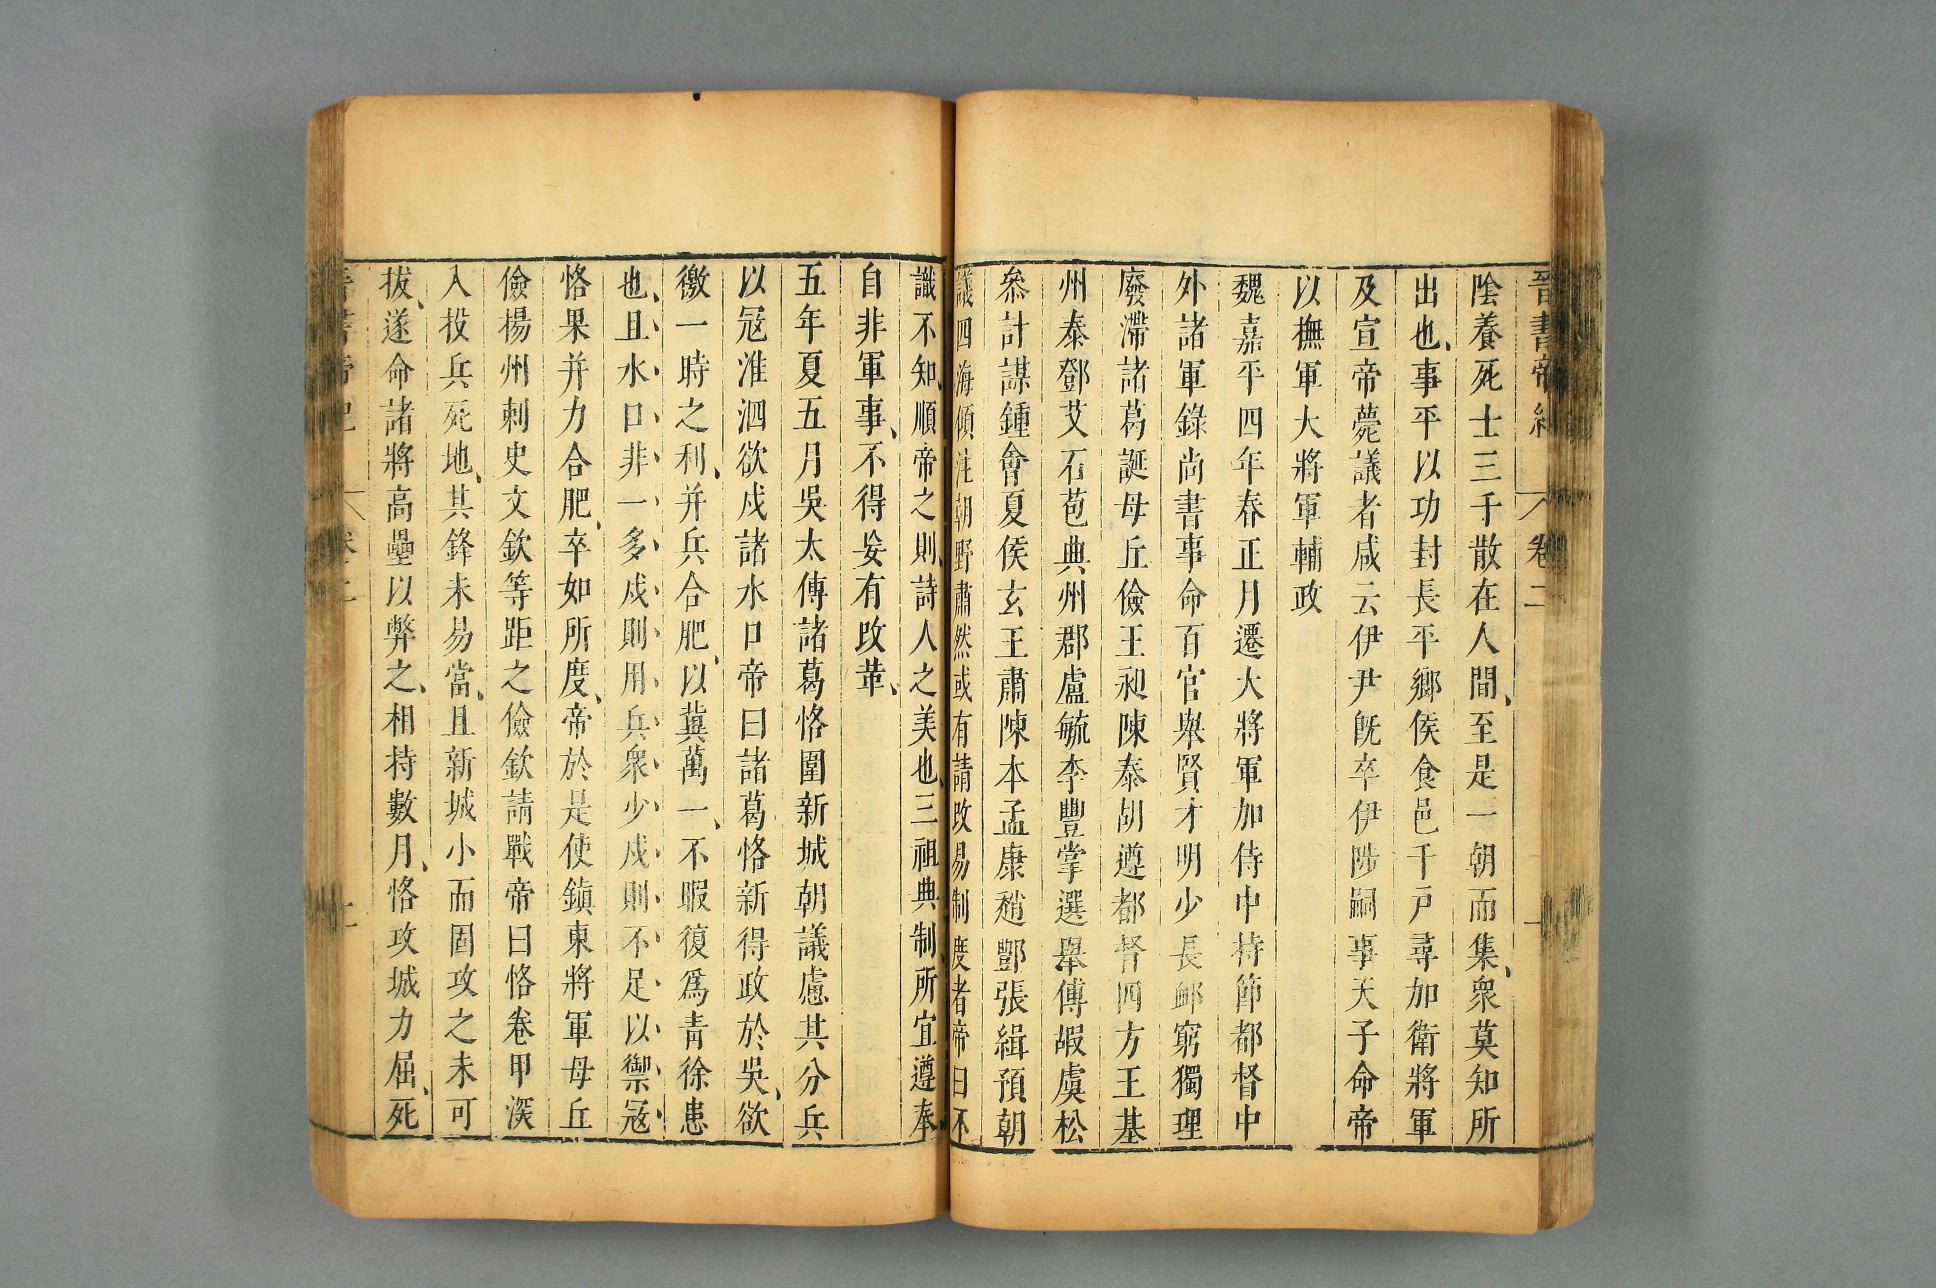 晉書帝紀 卷二 一
陰養死士三千散在人間至是一朝而集衆莫知所
出也事平以功封長平鄉侯食邑千戶尋加衛將軍
及宣帝薨議者咸云伊尹旣卒伊陟嗣事天子命帝
以撫軍大將軍輔政
魏嘉平四年春正月遷大將軍加侍中持節都督中
外諸軍錄尚書事命百官舉賢才明少長䘏窮獨理
廢滯諸葛誕毋丘儉王昶陳泰胡遵都督四方王基
州泰鄧艾石苞典州郡盧毓李豐掌選舉傅嘏虞松
參計謀鍾會夏侯玄王肅陳本孟康趙酆張緝預朝
議四海傾注朝野肅然或有請改易制度者帝曰不
識不知順帝之則詩人之美也三祖典制所宜遵奉
自非軍事不得妄有改革
五年夏五月吳太傅諸葛恪圍新城朝議慮其分兵
以寇淮泗欲戍諸水口帝曰諸葛恪新得政於吳欲
徼一時之利并兵合肥以冀萬一不暇復爲青徐患
也且水口非一多戍則用兵衆少戍則不足以禦寇
恪果并力合肥卒如所度帝於是使鎮東將軍毋丘
儉揚州刺史文欽等距之儉欽請戰帝曰恪卷甲深
入投兵死地其鋒未易當且新城小而固攻之未可
拔遂命諸將高壘以弊之相持數月恪攻城力屈死
晉書帝紀 卷二 二